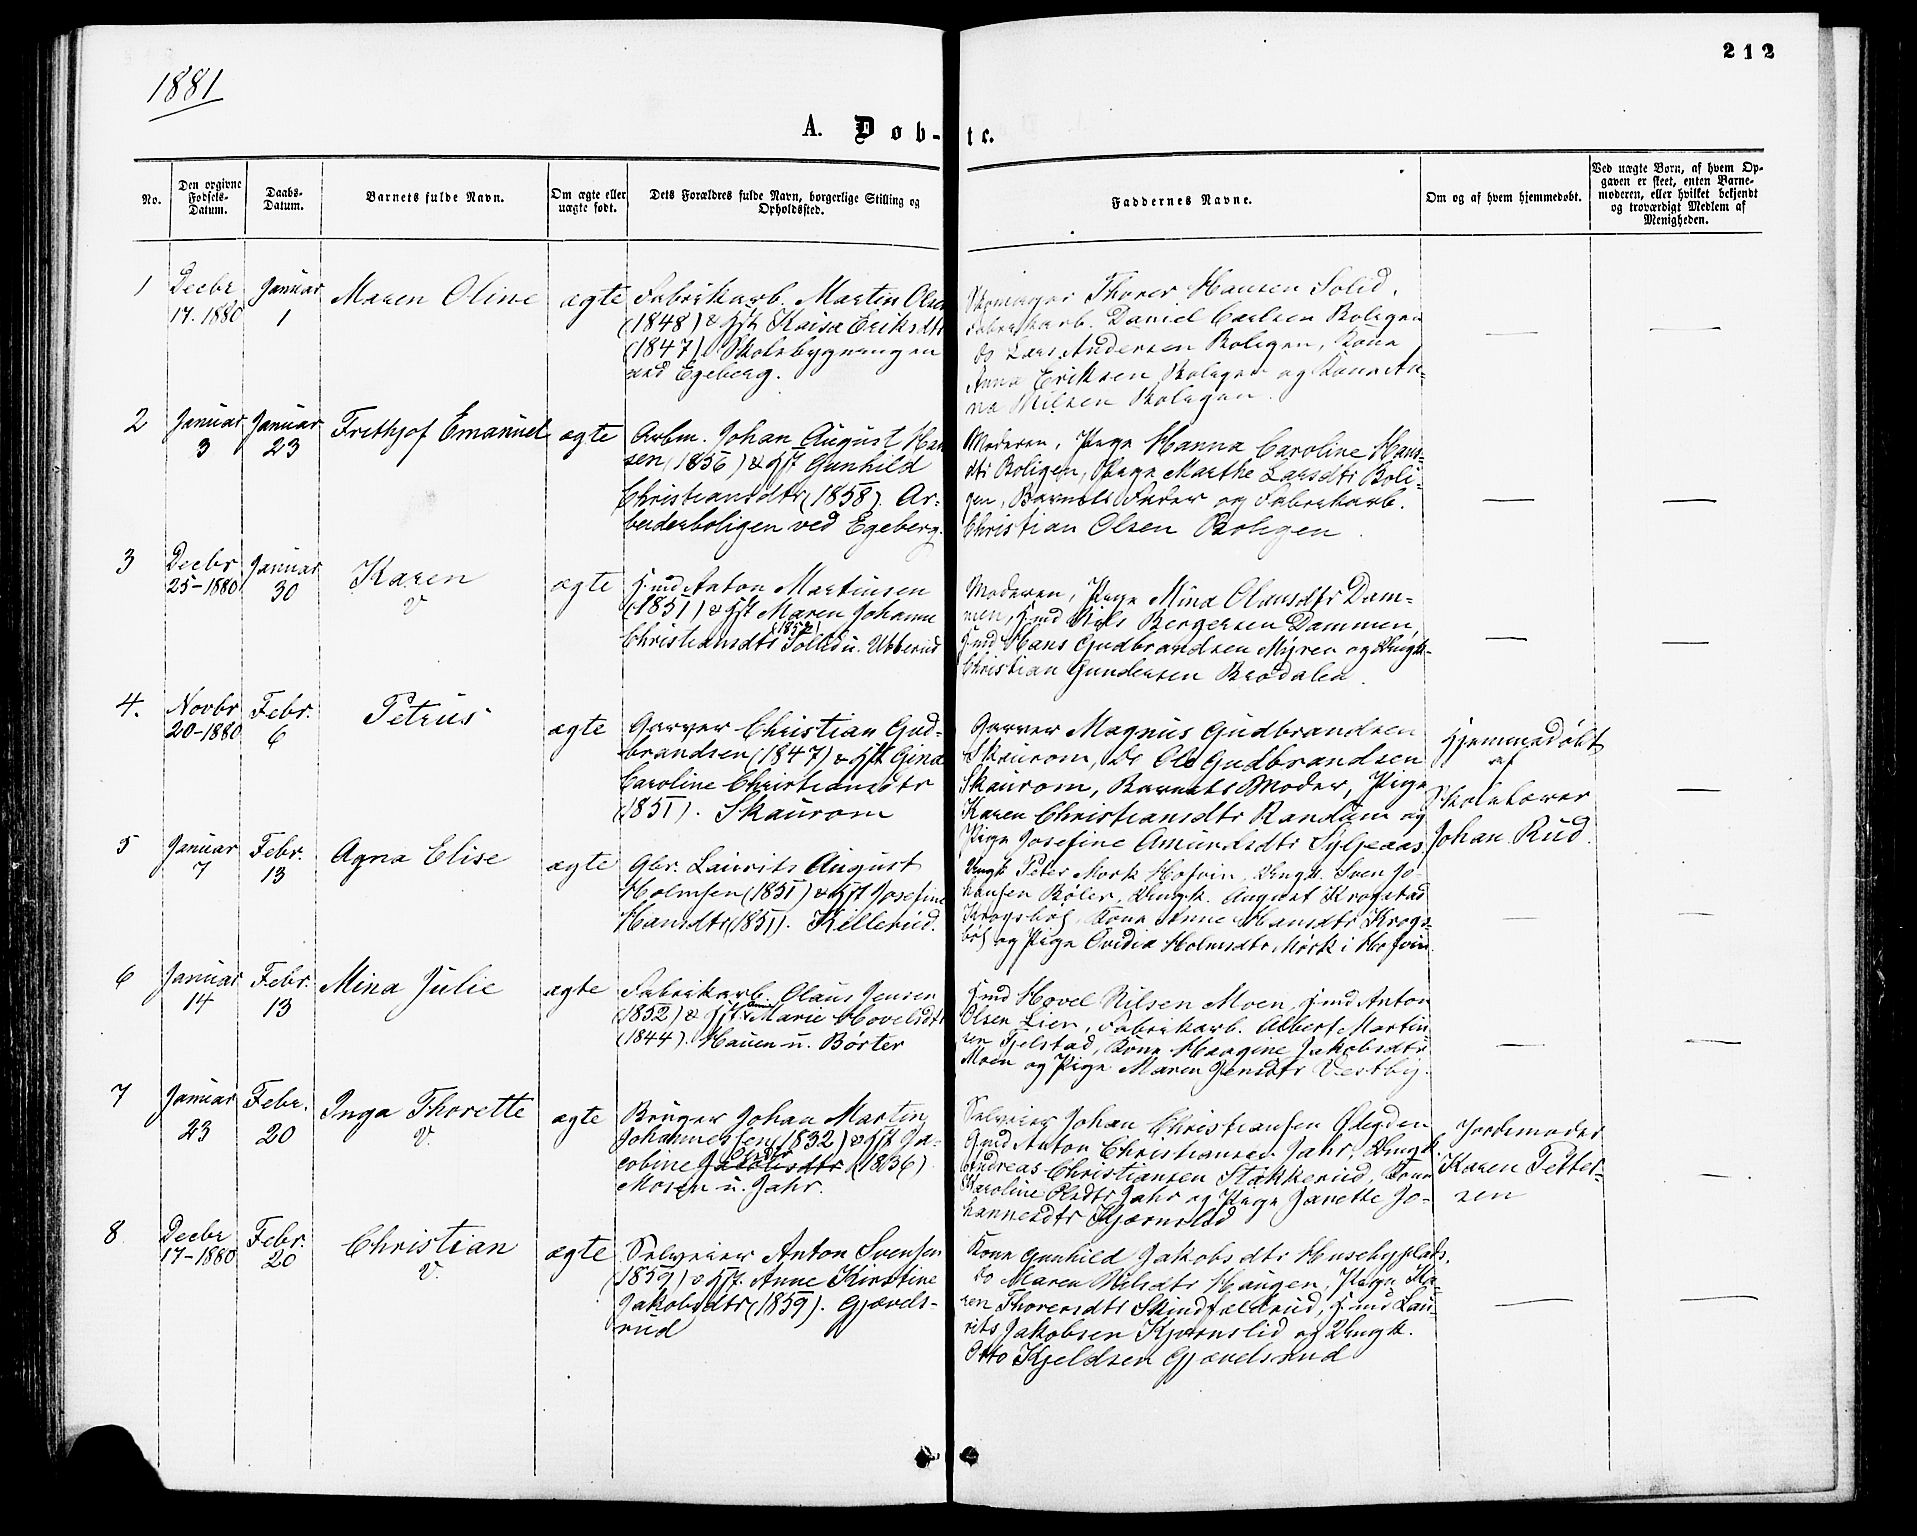 212
1881
A. Døb-te.
No.
Den opgivne
Fødsels-
Datum.
Daabs-
Datum.
Barnets fulde Navn.
Om ægte eller
uægte født.
Dets Forældres fulde Navn, borgerlige Stilling og
Opholdssted.
Faddernes Navne.
Om og af hvem hjemmedøbt.
Ved uægte Børn, af hvem Op-
gaven er skeet, enten Barne-
moderen, eller hvilket bekjendt
og troværdigt Medlem af
Menigheden.
1
Decbr
17. 1880
Januar
1
Maren Oline
ægte
Fabrikarb. Martin Olsen
(1848) & Hst Kaisa Eriksdtr
(1847). Skolebygningen
ved Egeberg.
Skomager Thorer Hansen Solid,
Fabrikarb. Daniel Carlsen Boligen
do Lars Andersen Boligen, Kone
Anna Eriksen Boligen og Kone An-
na Nilsen Boligen.
2
Januar
3
Januar
23
Frethjof Emanuel
ægte
Arbm. Johan August Han
sen (1856) & Hst Gunhild
Christiansdtr (1858). Ar-
beiderboligen ved Egeberg.
Moderen, Pige Hanna Caroline Hans-
dtr Boligen, Pige Marthe Larsdtr Boli-
gen, Barnets Fader og Fabrikarb.
Christian Olsen Boligen.
3
Decbr
25-1880
Januar
30
Karen
v
ægte
Hmd Anton Martinsen
(1851) & Hst Maren Johanne
Christiansdtr Tollid u. Ubberud
Moderen, Pige Mina Olausdtr Dam-
men, Hmd Nils Bergersen Dammen,
Hmd Hans Gudbrandsen Myren og Ungk.
Christian Gundersen Brødalen.
4.
Novbr
20-1880
Febr.
6
Petrus
ægte
Garver Christian Gud-
brandsen (1847) & Hst Gina
Caroline Christiansdtr
(1851). Skaurom
Garver Magnus Gudbrandsen
Skaurom, Do Ole Gudbrandsen
Skaurom, Barnets Moder, Pige
Karen Christiansdtr Randum og
Pige Josefine Amundsdtr Syljeaas
Hjemmedøbt
af
Skolelærer
Johan Rud.
5
Januar
7
Febr.
13
Agna Elise
ægte
Gbr. Laurits August
Holmsen (1851) & Hst Josefine
Hansdtr (1851). Killerud.
Ungk Peter Mork Hofvin, Ungk. Sven Jo-
hansen Bøler, Ungk. August Krogstad
Krogsbøl, Kone Anne Hansdtr Krogs-
bøl og Pige Ovidia Holmsdtr Mørk i Hofvin
6
Januar
14
Febr.
13
Mina Julie
ægte
Fabrikarb. Olaus Jensen
(1852) & Hst Marie Hovelsdtr
(1844). Hauen u. Børter
Hmd Hovel Nilsen Moen, Hmd Anton
Olsen Lien, Fabrikarb. Albert Martin
sen Fjelstad, Kone Hangine Jakobsdtr
Moen og Pige Maren Jensdtr Vestby.
7
Januar
23
Febr.
20
Inga Thorette
v.
ægte
Bruger Johan Martin
Johannessen (1832) & Hst Ja-
cobine Jacobsdtr (1836).
Mosen u. Jahr.
Selveier Johan Christiansen Øiegden
Hmd Anton Christiansen Jahr, Ungk.
Andreas Christiansen Stakkerud, Kone
Karoline Olsdtr Jahr og Pige Janette Jo-
hannesdtr Kjærnslid
Jordemoder
Karen Petter-
sen
8
Decbr
17-1880
Febr.
20
Christian
v.
ægte
Selveier Anton Svensen
(1859) & Hst. Anne Kirstine
Jakobsdtr (1859). Gjævels-
rud
Kone Gunhild Jakobsdtr Husebyplads,
do Maren Nilsdtr Haugen, Pige Ka-
ren Thorersdtr Skindfældrud, Hmd Lau-
rits Jakobsen Kjærnslid og Ungk.
Otto Kjeldsen Gjævelsrud